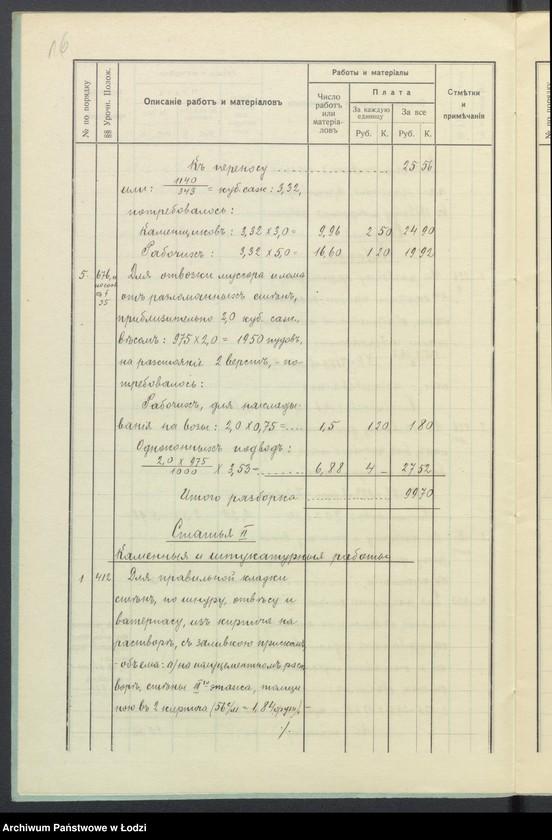 16
№ по порядку
§§ Урочн. Полож.
Описаніе работъ и матеріаловъ
Работы и матеріалы
Число работъ или матеріа-ловъ
Плата
За каждую единицу
За все
Руб. К. Руб. К.
Отмѣтки и примѣчанія
Къ переносу 25 56
или: 1140/343 = куб. саж: 3,32,
потребовалось:
Каменщиковъ: 3,32 x 3,0 = 9,96 2 50 24 90
Рабочихъ: 3,32 x 5,0 = 16,60 1 20 19 92
5. Для отвозки мусора и лома
35
отъ разломанныхъ стѣнъ,
приблизительно 2,0 куб. саж.,
вѣсомъ: 975 x 2,0 = 1950 пудовъ,
на разстояніе 2 верстъ, - по-
требовалось:
Рабочихъ, для наклады-
ванія на возы: 2,0 x 0,75 = 1,5 1 20 1 80
Одноконныхъ подводъ:
2,0 x 975/1000 x 3,53 - 6,88 4 _ 27 52
Итого разборка 99 70
Статья II
Каменныя и штукатурныя работы
1 412 Для правильной кладки
стѣнъ, по шнуру, отвѣсу и
ватерпасу, изъ кирпича на
растворѣ, съ заливкою
объема:
ворѣ, стѣны III го этажа, толщи-
ною въ 2 кирпича (56 с/м = 1,84
./.
Archiwum Państwowe w Łodzi